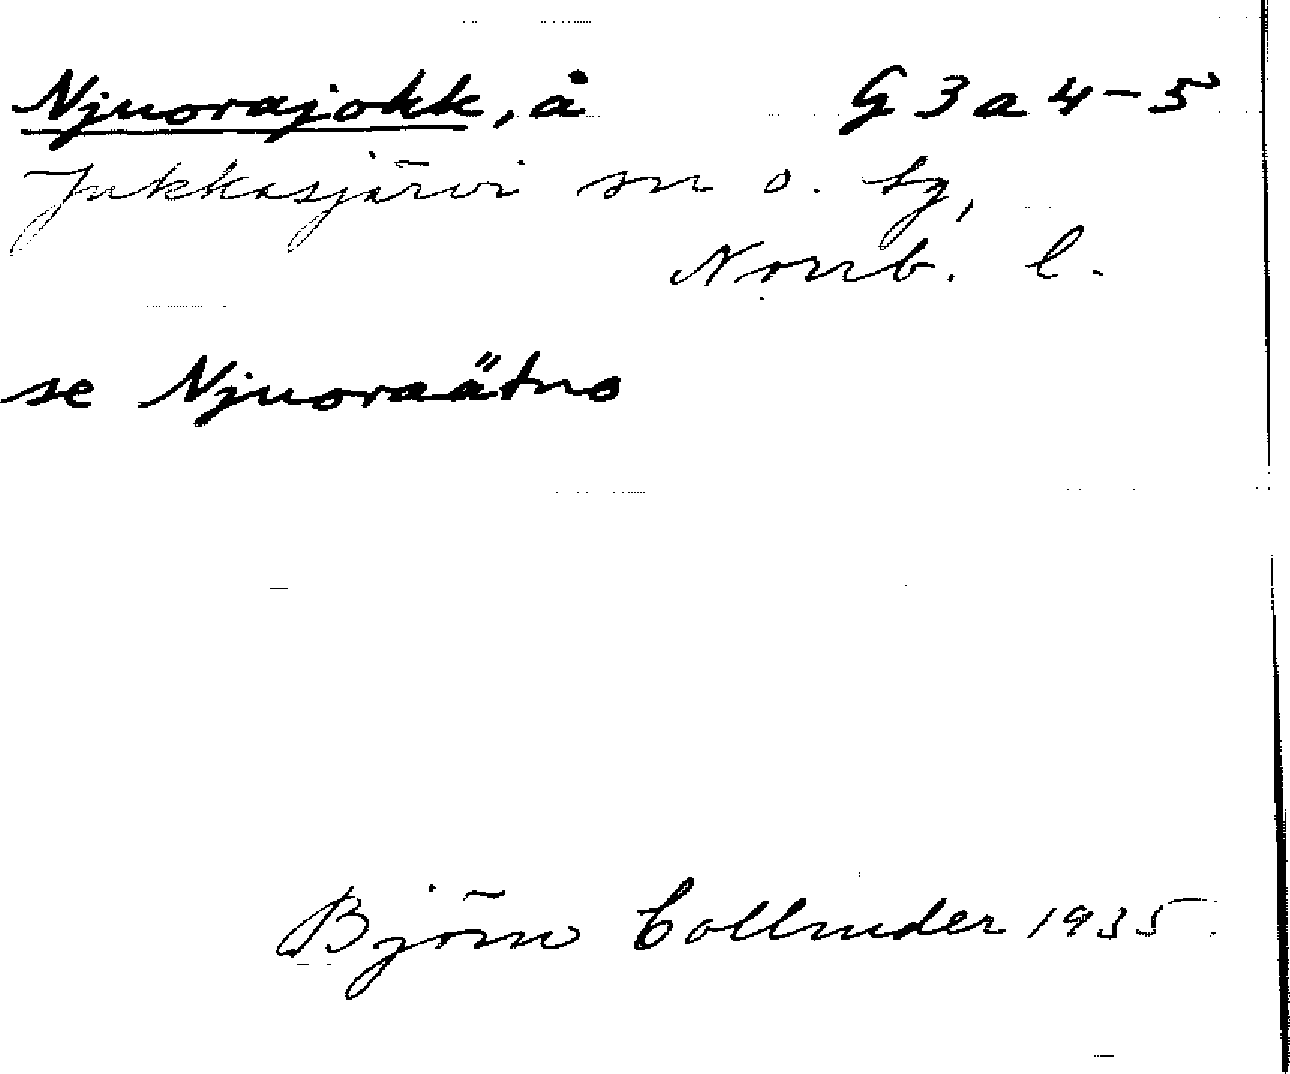 Njuorajokk, å G 3 a 4-5
Jukkasjärvi sn o. tg,
Norrb. l.
se Njuoraätno
Björn Collinder 1935.